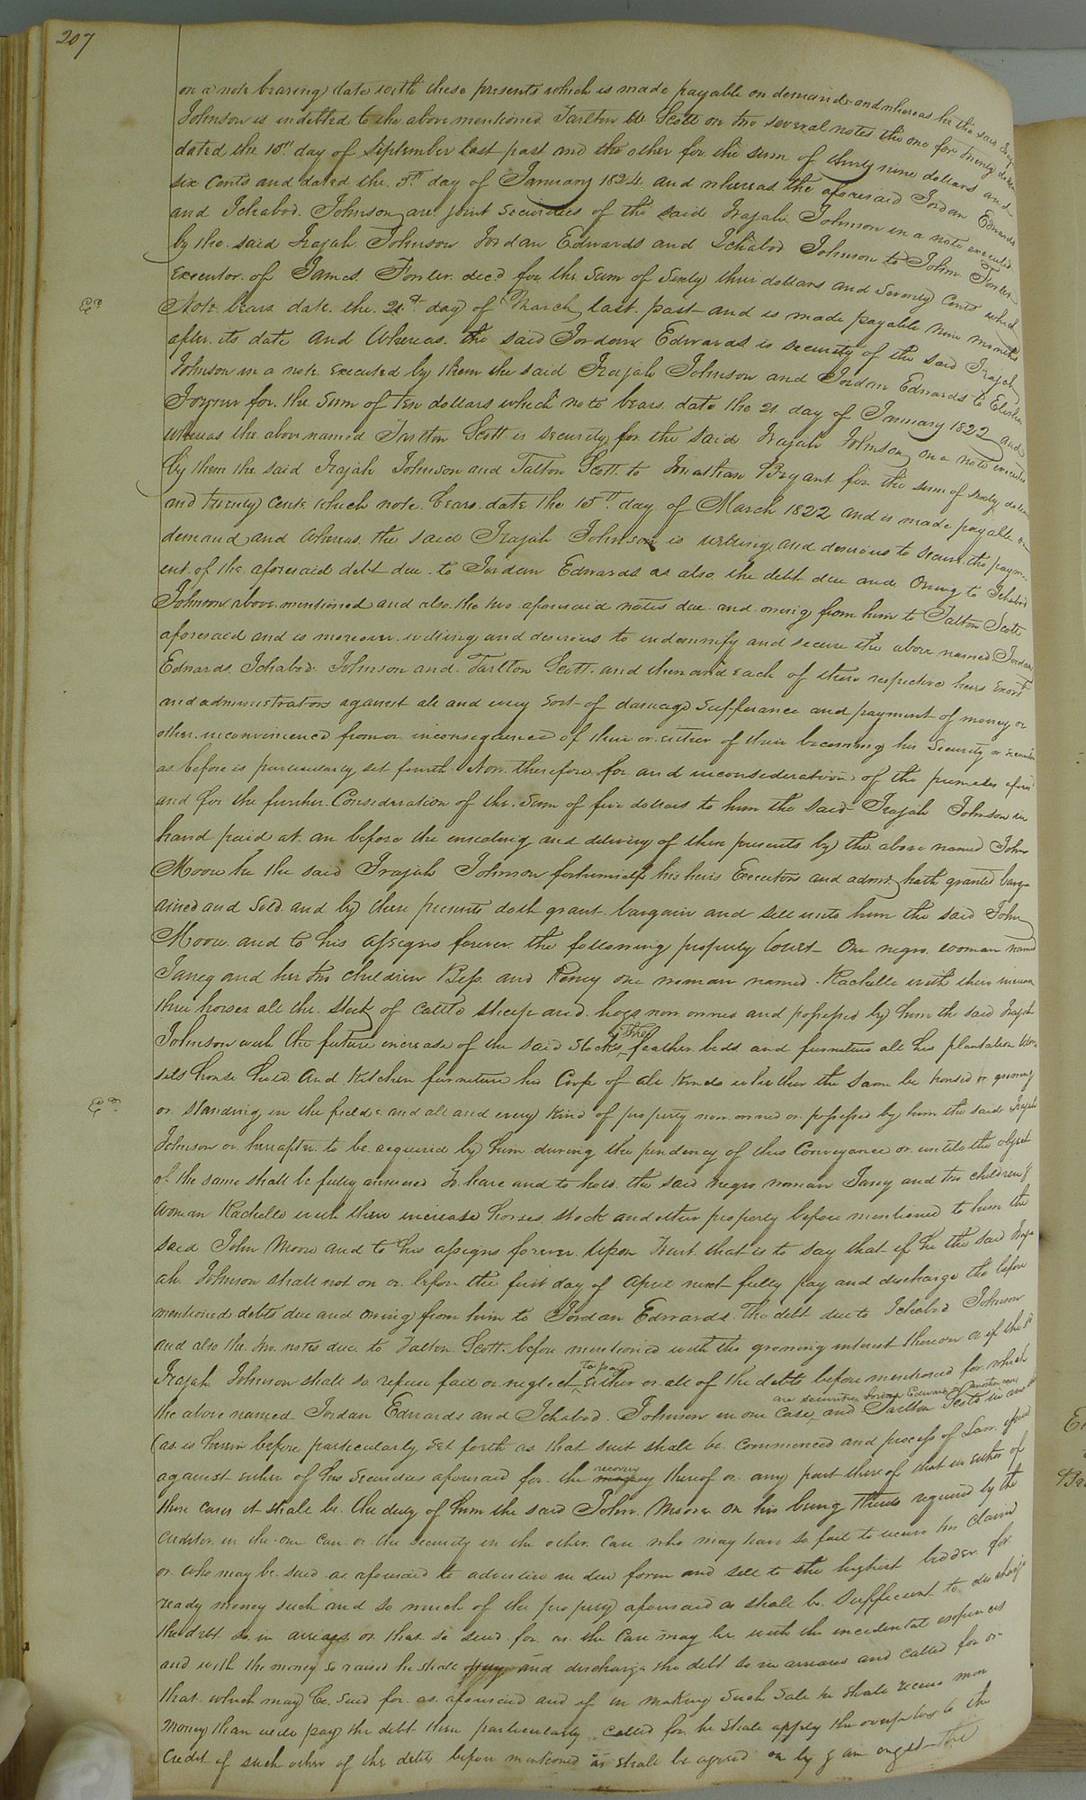 207
on a note bearing date with these presents which is made payable on demand and whereas he the said
Johnson is indebted to the above mentioned Tarlton W Scott on two several notes the one for twenty
dated the 10th day of September last past and the other for the sum of thirty nine dollars and
six Cents and dated the 5th day of January 1824 and whereas the aforesaid Jordan Edwards
and Ichabod Johnson are joint Securities of the said Irajah Johnson in a note executed
by the said Irajah Johnson Jordan Edwards and Ichabod Johnson to John Fowler
Executor of James Fowler decd for the Sum of Sixty three dollars and Seventy Cents which
Note bears date the 21st day of March last past and is made payable nine months
after its date and Whereas the said Jordan Edwards is security of the said Irajah
Johnson in a note Executed by them the said Irajah Johnson and Jordan Edwards to Elisha
Joyner for the Sum of ten dollars which note bears date the 21 day of January 1822 and
whereas the above named Tarlton Scott is security for the said Irajah Johnson on a note executed
by them the said Irajah Johnson and Talton Scott to Jonathan Bryant for the sum of Sixty
and twenty Cents which note bears date the 15th day of March 1822 and is made payable on
demand and Whereas the said Irajah Johnson is willing and desirous to secure the paym
ent of the aforesaid debt due to Jordan Edwards as also the debt due and Owing to Ichabod
Johnson above mentioned and also the two aforesaid notes due and owing from him to Talton Scott
aforesaid and is moreover willing and desirous to indemnify and secure the above named Jordan
Edwards Ichabod Johnson and Tarlton Scott and them and each of there respective heirs
and administrators against all and every Sort of damage Sufferance and payment of money or
other inconvenience from or inconsequence of their or either of their becoming his Security or
as before is particularly set fourth Now therefore for and inconsideration of the premises
and for the further Consideration of the Sum of five dollars to him the said Irajah Johnson in
hand paid at an before the ensealing and delivery of these presents by the above named John
Moore he the said Irajah Johnson forhimself his heirs Executors and admrs hath granted barg-
ained and Sold and by these presents doth grant bargain and Sell unto him the said John
Moore and to his assigns forever the following property towit One negro woman named
Janey and her two children Bess and Roney one woman named Rachelle with their increase
three horses all the stock of cattle sheep and hogs now owned and possessed by him the said Irajah
Johnson with the future increase of the said Stocks three feather beds and furniture all his plantation
sils house hold and Kitchen furniture his Crop of all kinds whether the Same be housed or growing
or Standing in the fields and all and every kind of property now owned or possessed by him the said Irajah
Johnson or hereafter to be acquired by him during the pendency of this Conveyance or untill the object
of the same shall be fully answered To have and to hold the said negro woman Janey and two children
Woman Rachelle with their increase horses Stock and other property before mentioned to him the
said John Moore and to his assigns forever Upon Trust that is to say that if he the said Iraj-
ah Johnson shall not on or before the first day of April next fully pay and discharge the before
mentioned debts due and owing from him to Jordan Edwards The debt due to Ichabod Johnson
and also the two notes due to Talton Scott before mentioned with the growing interest thereon or if the sd
Irajah Johnson shall so refuse fail or neglect to pay either or all of the debts before mentioned for which
are securities
the above named Jordan Edwards and Ichabod Johnson in one Case and Tarlton Scott in
(as is herein before particularly Set forth as that suit shall be commenced and process of Law
against either of his Securities aforesaid for the recovery thereof or any part there of that in either of
these cases it shall be the duty of him the said John Moore on his being required by the
creditor in the one case or the security in the other case who may have so fail to secure his claim
or who may be sued as aforesaid to advertise in due form and sell to the highest bidder for
ready money such and so much of the property aforesaid as shall be Sufficient to discharge
the debt so in arrears or that so sued for as the Case may be with the incidental expences
and with the money so raised he shall pay and discharge the debt so in arrears and called for or
that which may be sued for as aforesaid and if in making Such Sale he shall receive more
money than will pay the debt then particularly called for he shall apply the overplus to the
Credit of such other of the debts before mentioned as shall be agreed on by